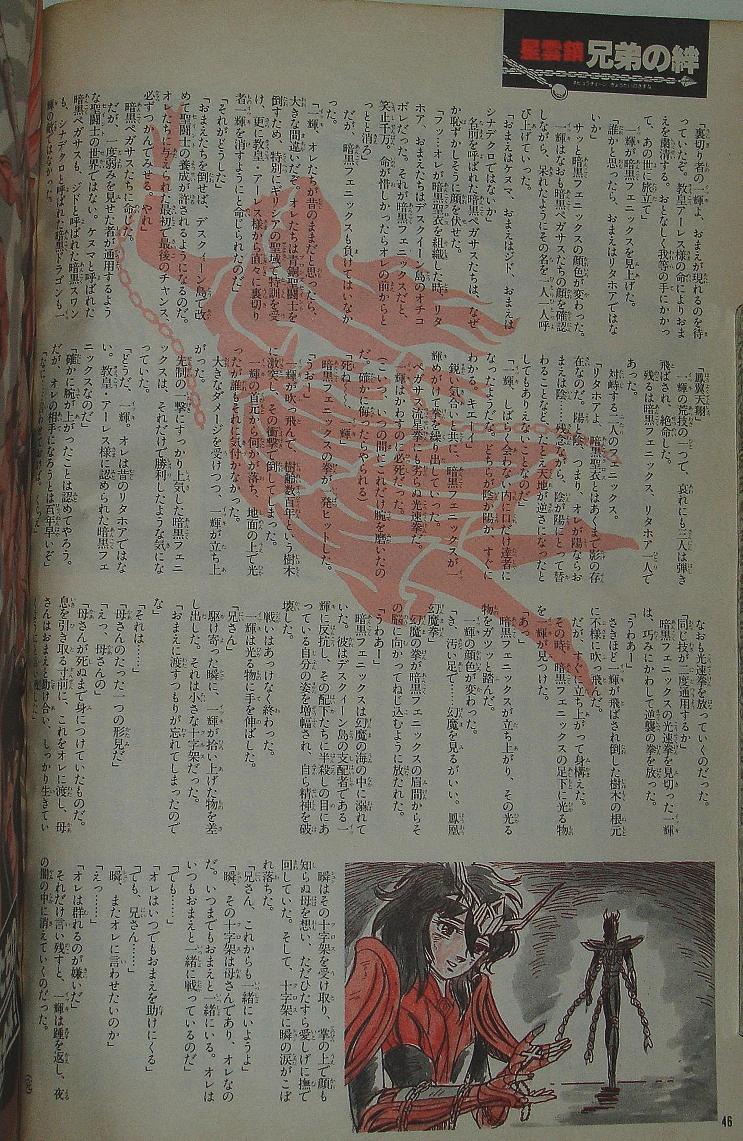 星雲鎖 兄弟の絆
ネビュラチェーン きょうだいのきずな
「裏切り者の一輝よ、おまえが現れるのを待
っていたぞ。教皇アーレス様の命によりおま
えを粛清する。おとなしく我等の手にかかっ
て、あの世に旅立て」
一輝が暗黒フェニックスを見上げた。
「誰かと思ったら、おまえはリタホアではな
いか」
サッと暗黒フェニックスの顔色が変わった。
一輝はなおも暗黒ペガサスたちの顔を確認
しながら、呆れたようにその名を一人一人呼
び上げていった。
「おまえはケヌマ、おまえはジド、おまえは
シナデクロではないか」
名前を呼ばれた暗黒ペガサスたちは、なぜ
か恥ずかしそうに顔を伏せた。
「フッ…オレが暗黒聖衣を組織した時、リタ
ホア、おまえたちはデスクィーン島のオチコ
ボレだった。それが暗黒フェニックスだと、
笑止千万。命が惜しかったらオレの前からと
っとと消ろ」
だが、暗黒フェニックスも負けてはいなか
った。
「一輝、オレたちが昔のままだと思ったら、
大きな間違いだ。オレたちは青銅聖闘士を
倒すため、特別にギリシアの聖域で特訓を受
け、更に教皇・アーレス様から直々に裏切り
者一輝を消すようにと命じられたのだ」
「それがどうした」
「おまえたちを倒せば、デスクィーン島で改
めて聖闘士の養成が許されるようになるのだ。
オレたちに与えられた最初で最後のチャンス、
必ずつかんでみせる。やれ」
暗黒ペガサスたちに命じた。
だが、一度弱みを見せた者が通用するよう
な聖闘士の世界ではない。ケヌマと呼ばれた
暗黒ペガサスも、ジドと呼ばれた暗黒スワン
も、シナデクロと呼ばれた暗黒ドラゴンも一
輝の敵ではなかった。
「鳳翼天翔」
一輝の荒技の一つで、哀れにも三人は弾き
飛ばされ、絶命した。
残るは暗黒フェニックス、リタホア一人で
あった。
対峙する二人のフェニックス。
「リタホアよ、暗黒聖衣とはあくまで影の存
在なのだ。陽と陰、つまり、オレが陽ならお
まえは陰……残念ながら、陰が陽にとって替
わることなど、たとえ天地が逆さになったと
してもありえないことなのだ」
「一輝、しばらく会わない内に口だけ達者に
なったようだな。どちらが陰か陽か、すぐに
わかる。キエーイ」
鋭い気合いと共に、暗黒フェニックスが一
輝めがけて拳を繰り出していった。
ペガサス流星拳にも劣らぬ光速拳だ。
一輝はかわすのに必死だった。
（こいつ、いつの間にこれだけ腕を磨いたの
だ。確かに侮ったらやられる）
「死ねーっ、一輝」
暗黒フェニックスの拳が、一発ヒットした。
「うおー」
一輝が吹っ飛んで、樹齢数百年という樹木
に激突し、その衝撃で倒してしまった。
一輝の首元から何かが落ち、地面の上で光
ったが誰もそれに気付かなかった。
大きなダメージを受けつつ、一輝が立ち上
がった。
先制の一撃にすっかり上気した暗黒フェニ
ックスは、それだけで勝利したような気にな
っていた。
「どうだ、一輝。オレは昔のリタホアではな
い。教皇・アーレス様に認められた暗黒フェ
ニックスなのだ」
「確かに腕が上がったことは認めてやろう。
だが、オレの相手になろうとは百年早いぞ」
なおも光速拳を放っていくのだった。
「同じ技が二度通用するか」
暗黒フェニックスの光速拳を見切った一輝
は、巧みにかわして逆襲の拳を放った。
「うわあー」
さきほど一輝が飛ばされ倒した樹木の根元
に不様に吹っ飛んだ。
だが、すぐに立ち上がって身構えた。
その時、暗黒フェニックスの足下に光る物
を一輝が見つけた。
「あっ」
暗黒フェニックスが立ち上がり、その光る
物をガツッと踏んだ。
一輝の顔色が変わった。
「き、汚い足で……幻魔を見るがいい。鳳凰
幻魔拳」
幻魔の拳が暗黒フェニックスの眉間からそ
の脳に向かってねじ込むように放たれた。
「うわあー」
暗黒フェニックスは幻魔の海の中に溺れて
いた。彼はデスクィーン島の支配者である一
輝に反抗し、その配下たちに半殺しの目にあ
っている自分の姿を増幅され、自ら精神を破
壊した。
戦いはあっけなく終わった。
一輝は光る物に手を伸ばした。
「兄さん」
駆け寄った瞬に、一輝が拾い上げた物を差
し出した。それは小さな十字架だった。
「おまえに渡すつもりが忘れてしまったので
な」
「それは……」
「母さんのたった一つの形見だ」
「えっ、母さんの」
「母さんが死ぬまで身につけていたものだ。
息を引き取る寸前に、これをオレに渡し、母
さんはおまえと助け合い、しっかり生きてい
瞬はその十字架を受け取り、掌の上で顔も
知らぬ母を想い、ただひたすら愛しげに撫で
回していた。そして、十字架に瞬の涙がこぼ
れ落ちた。
「兄さん、これからも一緒にいようよ」
「瞬、その十字架は母さんであり、オレなの
だ。いつまでもおまえと一緒にいる。オレは
いつもおまえと一緒に戦っているのだ」
「でも……」
「オレはいつでもおまえを助けにくる」
「でも、兄さん……」
「瞬、またオレに言わせたいのか」
「えっ……」
「オレは群れるのが嫌いだ」
それだけ言い残すと、一輝は踵を返し、夜
の闇の中に消えていくのだった。
46